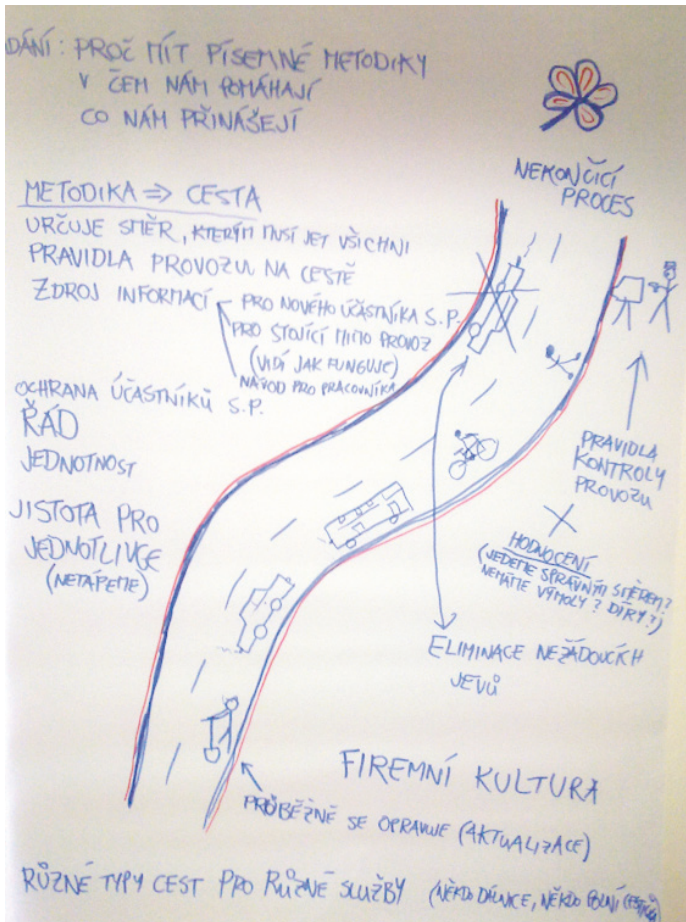 DÁNÍ: PROČ MÍT PÍSEMNÉ METODIKY
V ČEM NÁM POMÁHAJÍ
CO NÁM PŘINÁŠEJÍ
NEKONČÍCÍ
PROCES
METODIKA ⇒ CESTA
URČUJE SMĚR, KTERÝM MUSÍ JET VŠICHNI
PRAVIDLA PROVOZU NA CESTĚ
ZDROJ INFORMACÍ
PRO NOVÉHO ÚČASTNÍKA S.P.
PRO STOJÍCÍ MIMO PROVOZ
(VIDÍ JAK FUNGUJE)
NÁVOD PRO PRACOVNÍKA
OCHRANA ÚČASTNÍKŮ S.P.
ŘÁD
JEDNOTNOST
JISTOTA PRO
JEDNOTLIVCE
(NETÁPEME)
PRAVIDLA
KONTROLY
PROVOZU
HODNOCENÍ
(JEDEME SPRÁVNÝM SMĚREM?
NEMÁME VÝMOLY? DÍRY?)
ELIMINACE NEŽÁDOUCÍCH
JEVŮ
FIREMNÍ KULTURA
PRŮBĚŽNĚ SE OPRAVUJE (AKTUALIZACE)
RŮZNÉ TYPY CEST PRO RŮZNÉ SLUŽBY (NĚKDO DÁLNICE, NĚKDO POLNÍ